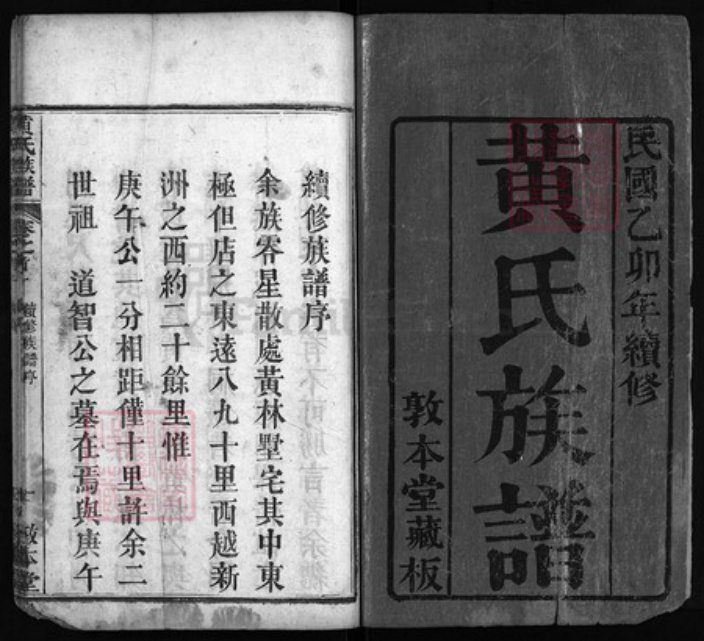 民國乙卯年續修
黃氏族譜
敦本堂藏板
續修族譜序
余族零星散處黃林墅宅其中東
極但店之東遠八九十里西越新
洲之西約二十餘里惟
庚午公一分相距僅十里許余二
世祖 道智公之墓在焉與庚午
黃氏族譜 卷之首 續修族譜序 敦本堂